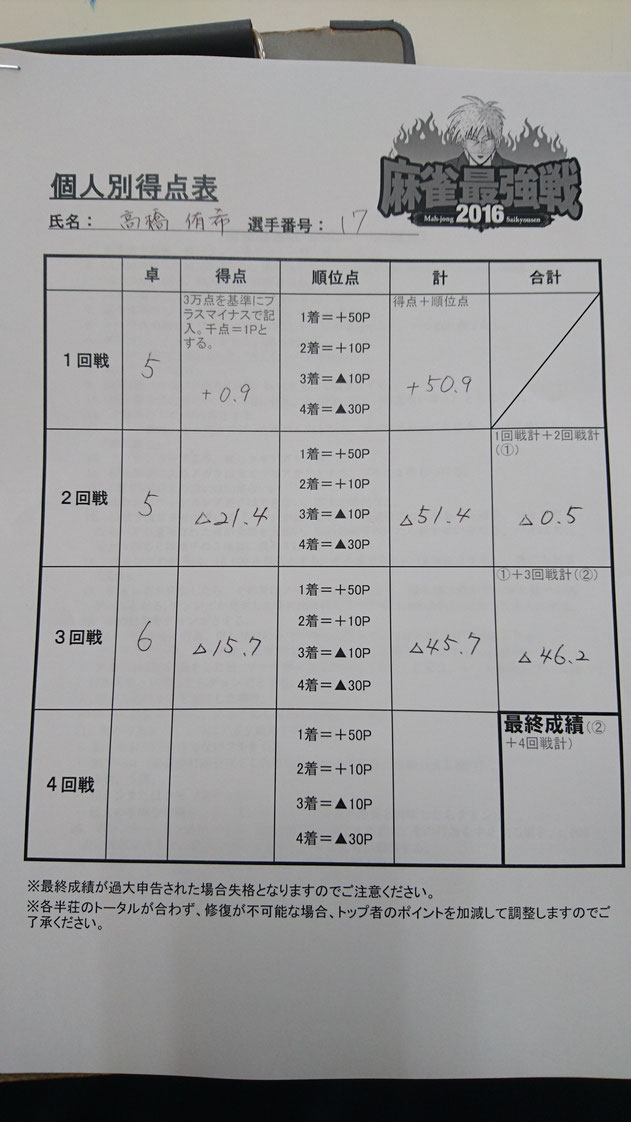 麻雀最強戦
Mah-jong 2016 Saikyousen
個人別得点表
氏名： 高橋 侑希 選手番号： 17
卓 得点 順位点 計 合計
1回戦
5
3万点を基準にプ
ラスマイナスで記
入。千点＝1Pと
する。
+0.9
1着＝＋50P
2着＝＋10P
3着＝▲10P
4着＝▲30P
得点＋順位点
+50.9
2回戦
5
△21.4
1着＝＋50P
2着＝＋10P
3着＝▲10P
4着＝▲30P
△51.4
1回戦計＋2回戦計
(①)
△0.5
3回戦
6
△15.7
1着＝＋50P
2着＝＋10P
3着＝▲10P
4着＝▲30P
△45.7
①＋3回戦計(②)
△46.2
4回戦
1着＝＋50P
2着＝＋10P
3着＝▲10P
4着＝▲30P
最終成績(②
＋4回戦計)
※最終成績が過大申告された場合失格となりますのでご注意ください。
※各半荘のトータルが合わず、修復が不可能な場合、トップ者のポイントを加減して調整しますのでご
了承ください。